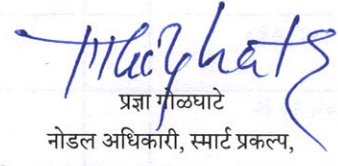 प्रज्ञा गोळघाटे
नोडल अधिकारी, स्मार्ट प्रकल्प,